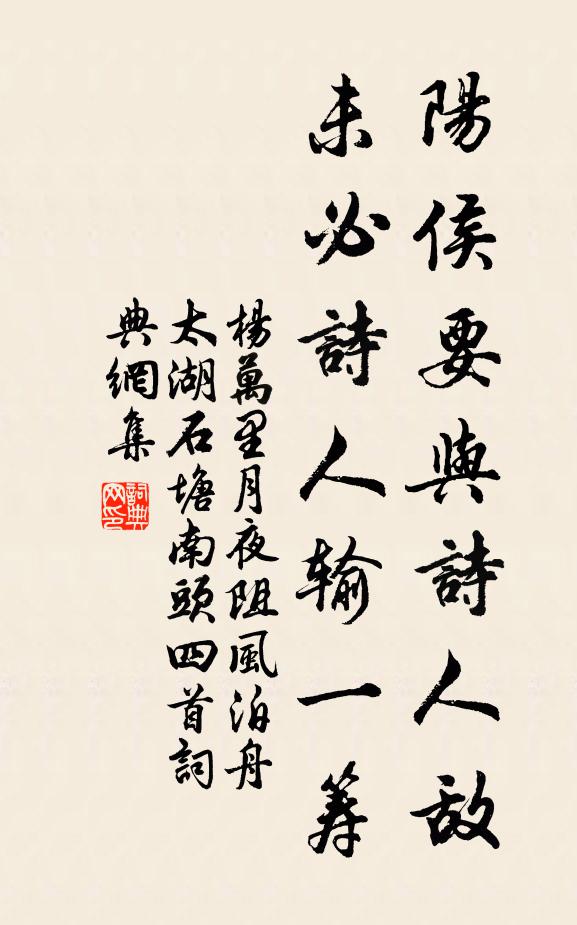 陽侯要與詩人敵
未必詩人输一筹
楊萬里月夜阻風泊舟
太湖石塘南頭四首詞
典網集
詞典
网印